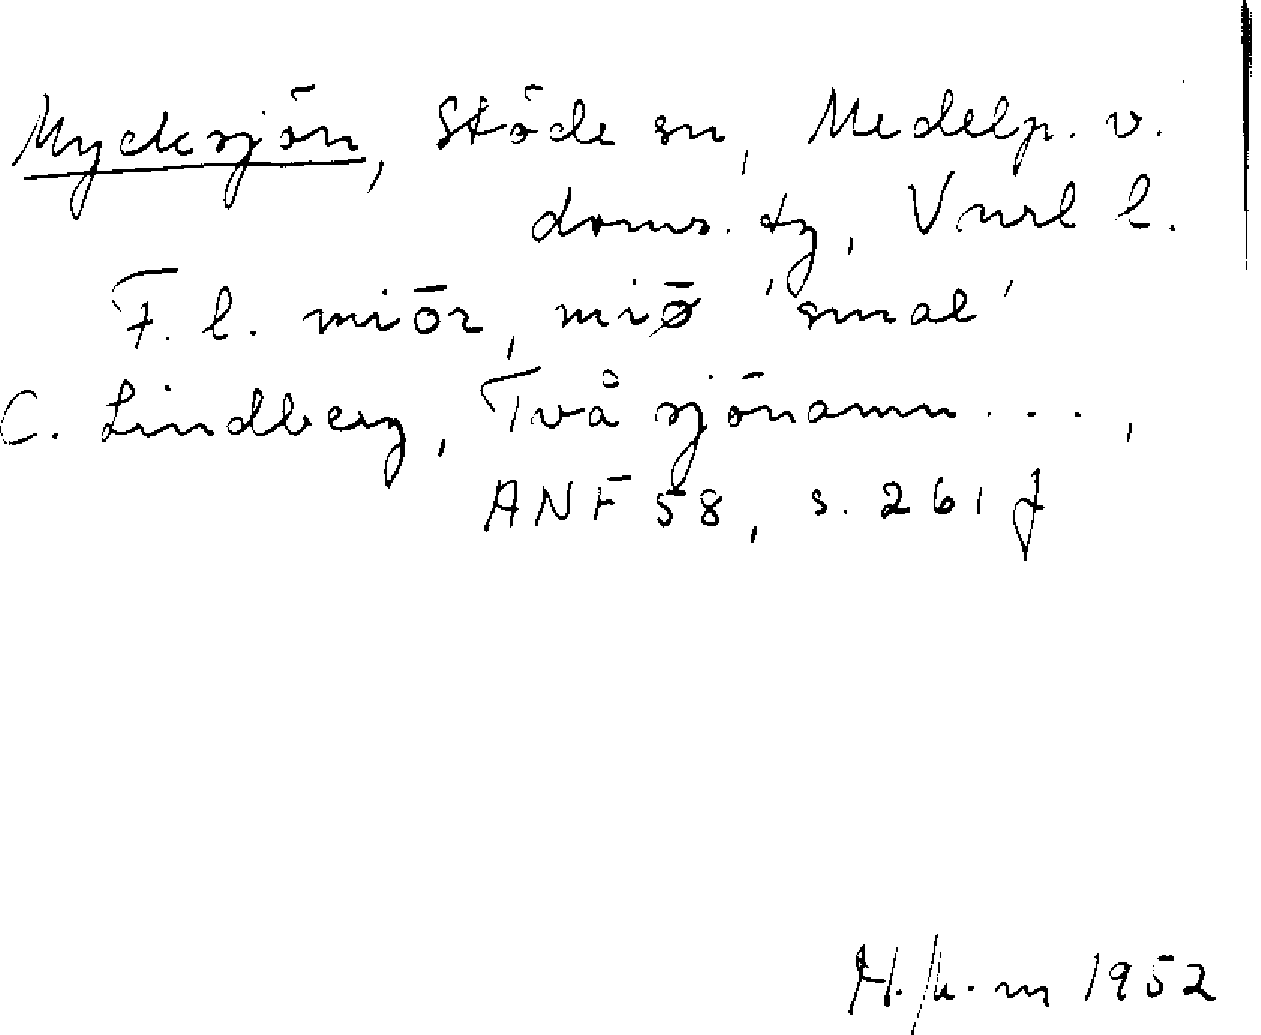 Mycksjön, Stöde sn, Medelp. v.
doms. tg, Vnrl l.
F. l. miōr, miø̄ 'smal'
C. Lindberg, Två sjönamn ...,
ANF 58, s. 261 f
1952